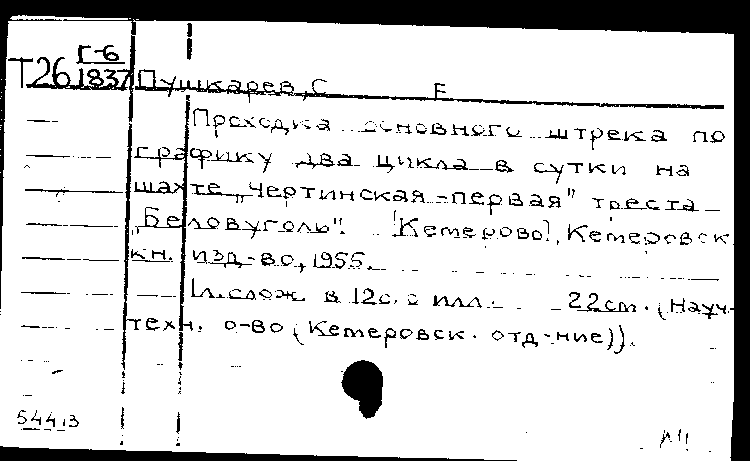 Г-6
Т26 1837 Пушкарев, С Е
Проходка основного штрека по
графику два цикла в сутки на
шахте „Чертинская-первая" треста
„Беловуголь". [Кемерово], Кемеровск.
кн. изд-во, 1955.
1л. слож. в 12с. с илл. 22см. (Науч.-
техн. о-во (Кемеровск. отд-ние)).
54413